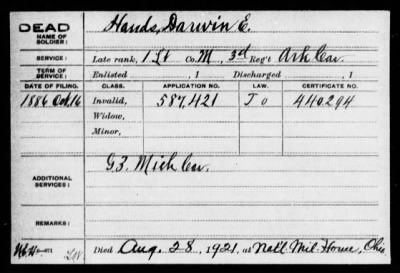 DEAD
NAME OF SOLDIER: Hands, Darwin E.
SERVICE: Late rank, 1 Lt Co. M, 3d Reg't Ark Cav.
TERM OF SERVICE: Enlisted , 1 Discharged , 1
DATE OF FILING. CLASS. APPLICATION NO. LAW. CERTIFICATE NO.
1886 Oct. 16 Invalid, 587,421 440294
Widow,
Minor,
ADDITIONAL SERVICES: G 3. Mich Cav.
REMARKS:
Died Aug. 28, 1921, at Nat'l Mil. Home, Ohio